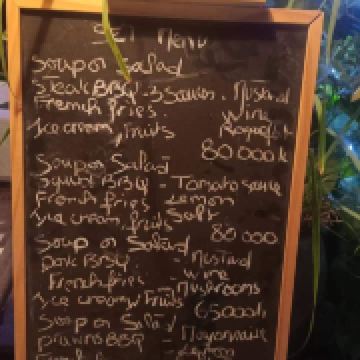 SET Menu
Soup or Salad
Steak BBQ - 3 Sauces . Mustard
French fries. Wine
Ice cream, fruits Roquefort
80 000k
Soup or Salad
Squid BBQ - Tomato sauce
French fries Lemon
Ice cream, fruits Salt
80 000
Soup or Salad
Pork BBQ - Mustard
French fries - Wine
Ice cream / Fruits - Mushrooms
65000k
Soup or Salad
Prawns BBQ - Mayonnaise